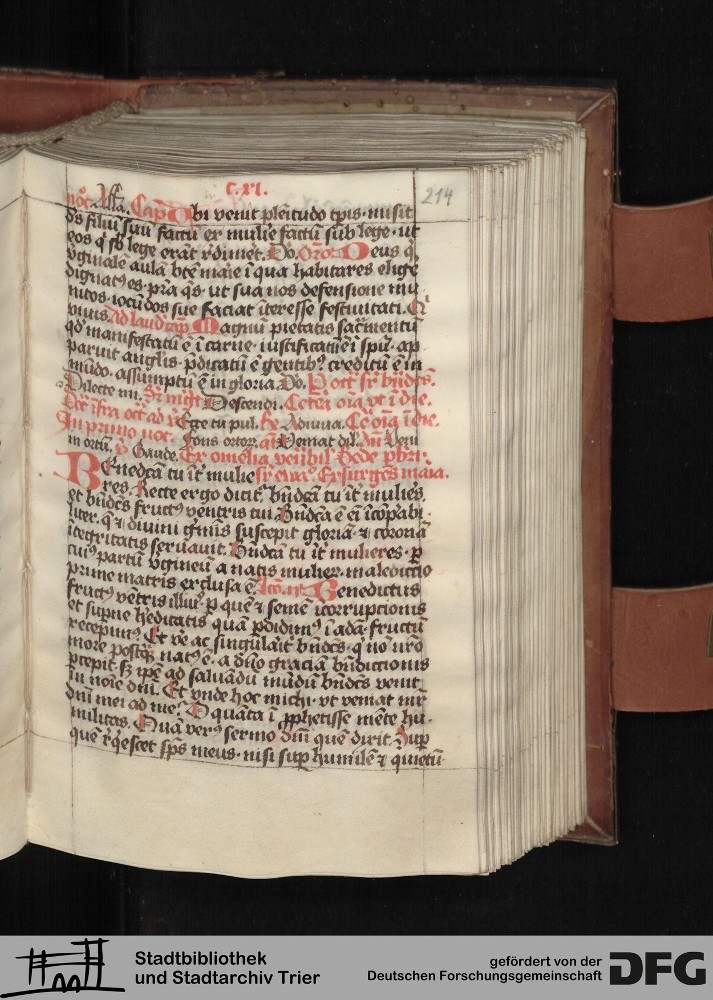 c. xl.
214
Cap Ubi venit plenitudo tpis misit
ds filiu suu factu ex mulie factu sub lege ut
eos q sb lege erat rdimet. Do. Oro. Deus q
vginale aula bte marie i qua habitares elige
dignatus es pra qs ut sua nos defensione mu
nitos iocudos sue faciat iteresse festivitati. Q
vivis Ad laud cap Magnu pietatis sacmentu
qd manifestatu e i carne iustificatu e i spu ap
paruit anglis pdicatu e gentib creditu e in
mudo assumptu e in gloria Do.
Dilecte mi. Descendi. Cetera oia ut i die.
Ege tu pul. Adiuva. Cet oia i die.
In primo noc. Fons ortor. Veniat dil. Veni
in ortu. Gaude. Ex omelia venlib Bede pbri.
Benedcta tu it mulie sr eva. Exsurges maria.
res. Recte ergo dicit bndcta tu it mulies
et bndcs fruct ventris tui Bndcta e ei icopabi
liter q et divini gminis suscepit gloria et corona
itegritatis servavit. Bndcta tu it mulieres p
cui partu vgineu a natis mulier maledictio
prime matris exclusa e. Benedictus
fruct ventris illius p que et seme icorrupcionis
et supne heditatis qua pdidim i ada fructu
recepim. Et ve ac singulait bndcs q no nro
more postq nat e a dno gracia bndictionis
pcepit sz ipe ad salvadu mudu bndcs venit
in noie dni. Et unde hoc michi ut veniat mr
dni mei ad me. O quata i pphetisse mete hu
militas. Qua verus sermo dni que dixit. Sup
que rqescet sps meus nisi sup humile et quietu
Stadtbibliothek
und Stadtarchiv Trier
gefördert von der
Deutschen Forschungsgemeinschaft
DFG